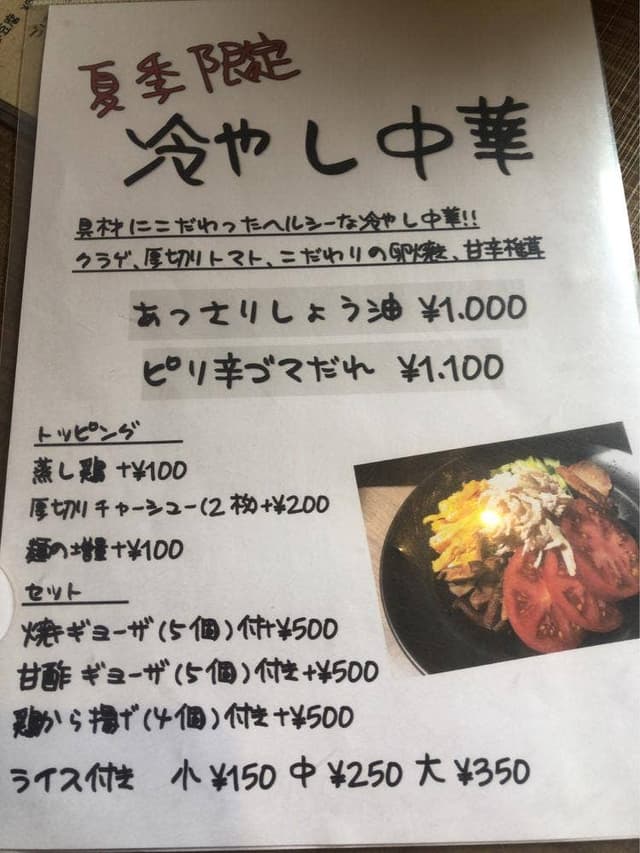 夏季限定
冷やし中華
具材にこだわったヘルシーな冷やし中華!!
クラゲ、厚切りトマト、こだわりの卵焼、甘辛椎茸
あっさりしょう油 ¥1.000
ピリ辛ゴマだれ ¥1.100
トッピング
蒸し鶏 +¥100
厚切りチャーシュー(2枚)+¥200
麺の増量+¥100
セット
焼きギョーザ(5個)付+¥500
甘酢ギョーザ(5個)付き+¥500
鶏から揚げ(4個)付き+¥500
ライス付き 小¥150 中¥250 大¥350